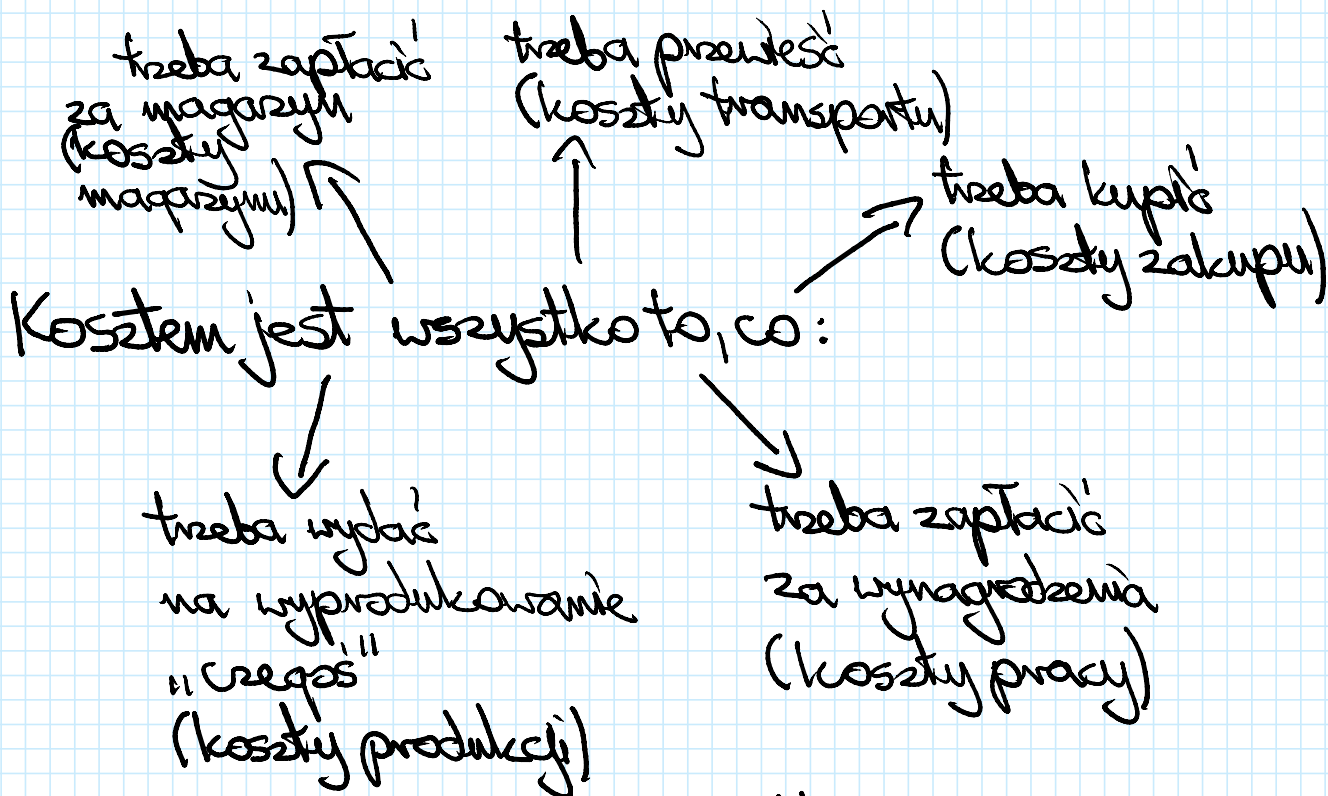 trzeba zapłacić
za magazyn
(koszty
magazynu)
trzeba przewieść
(koszty transportu)
trzeba kupić
(koszty zakupu)
Kosztem jest wszystko to, co:
trzeba wydać
na wyprodukowanie
„czegoś"
(koszty produkcji)
trzeba zapłacić
za wynagrodzenia
(koszty pracy)